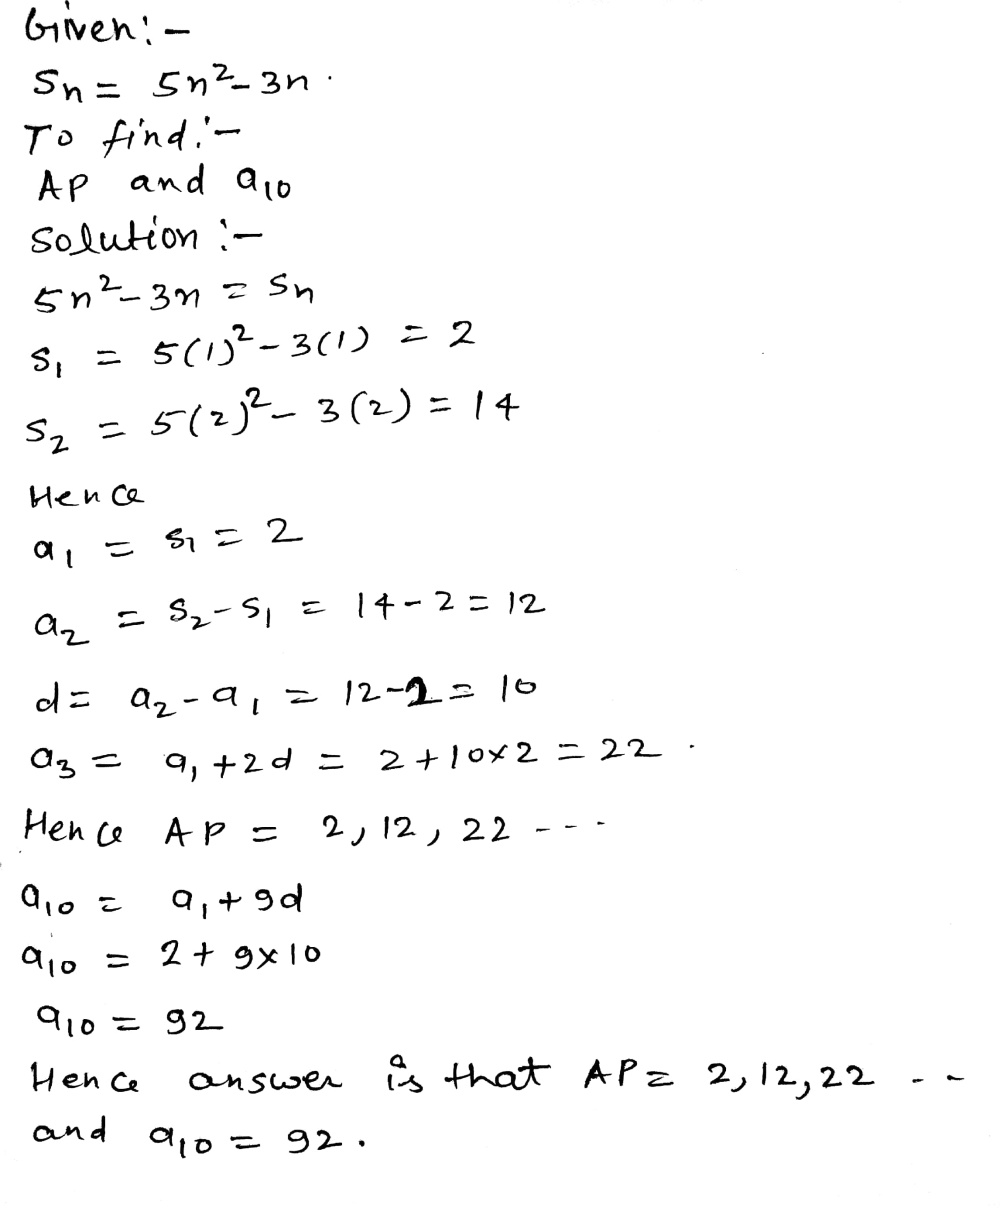 Given:-
Sn = 5n²-3n.
To find:-
AP and a₁₀
Solution :-
5n²-3n = Sn
S₁ = 5(1)²-3(1) = 2
S₂ = 5(2)²-3(2) = 14
Hence
a₁ = S₁ = 2
a₂ = S₂-S₁ = 14-2 = 12
d = a₂-a₁ = 12-2 = 10
a₃ = a₁+2d = 2+10×2 = 22.
Hence AP = 2, 12, 22 ---
a₁₀ = a₁+9d
a₁₀ = 2+9×10
a₁₀ = 92
Hence answer is that AP = 2, 12, 22 --
and a₁₀ = 92.